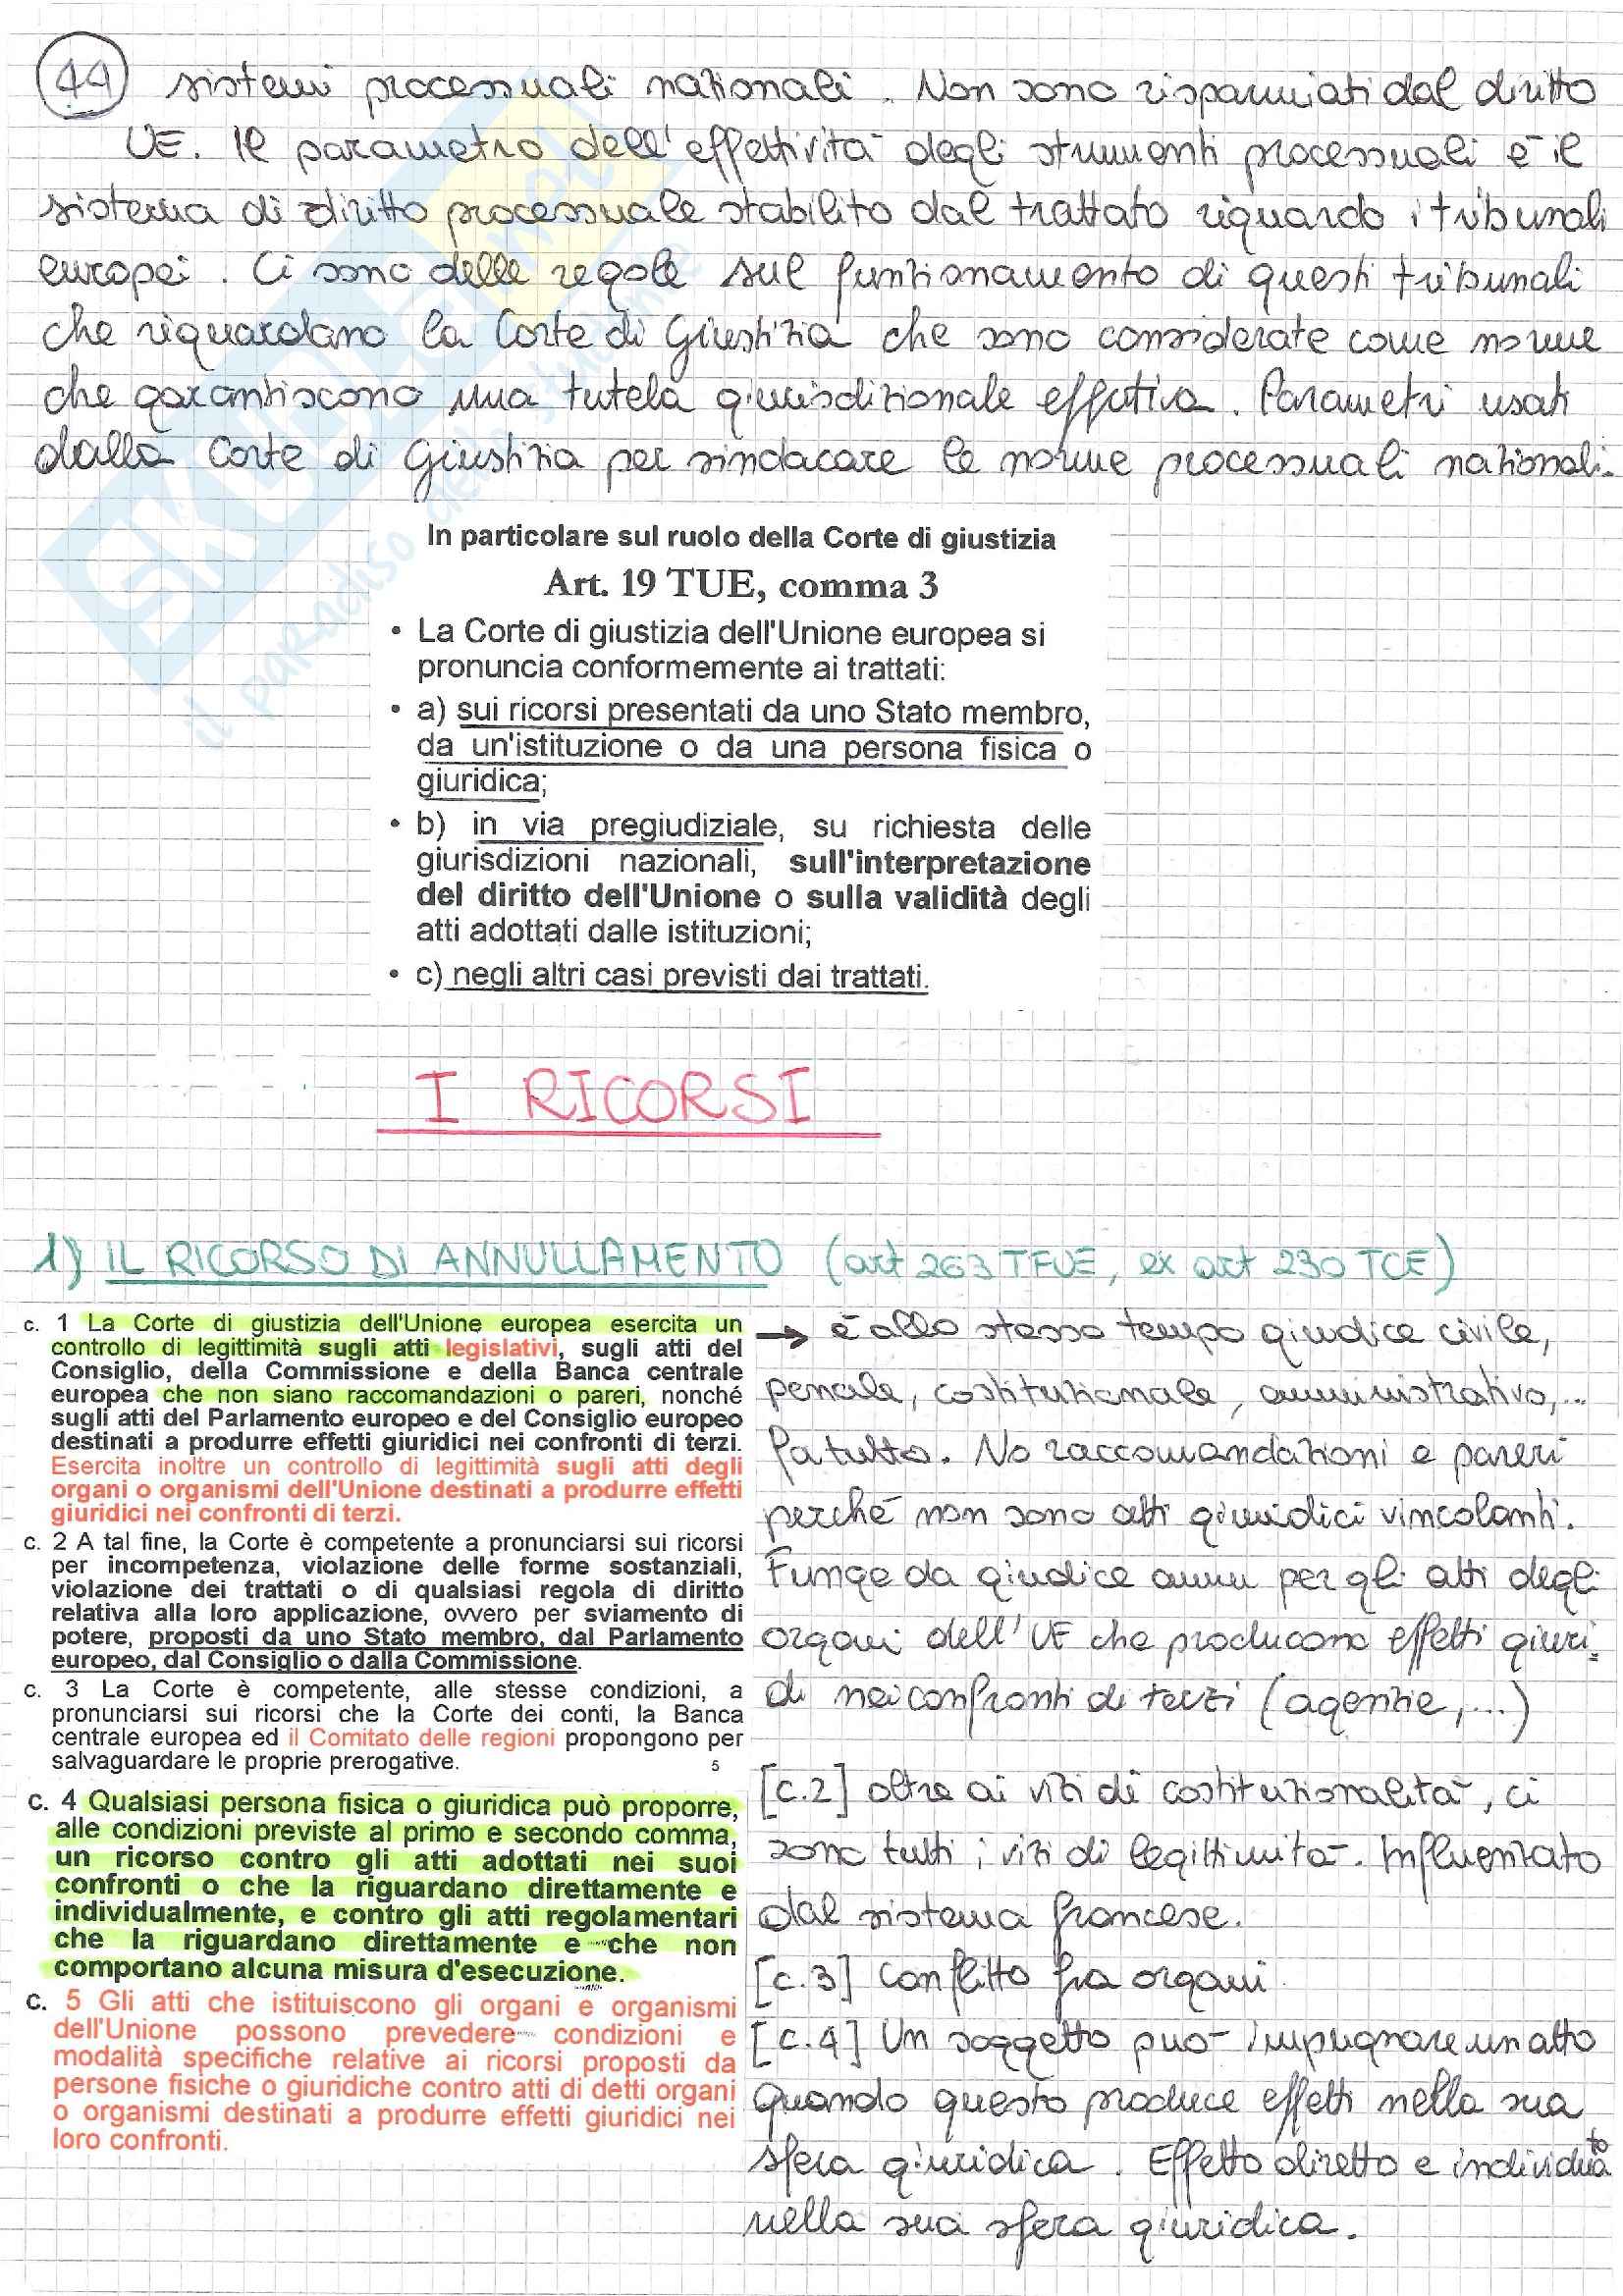 44 sistemi processuali nazionali. Non sono risparmiati dal diritto
UE. Il parametro dell'effettività degli strumenti processuali è il
sistema di diritto processuale stabilito dal trattato riguardo i tribunali
europei. Ci sono delle regole sul funzionamento di questi tribunali
che riguardano la Corte di Giustizia che sono considerate come norme
che garantiscono una tutela giurisdizionale effettiva. Parametri usati
dalla Corte di Giustizia per sindacare le norme processuali nazionali.
In particolare sul ruolo della Corte di giustizia
Art. 19 TUE, comma 3
• La Corte di giustizia dell'Unione europea si
pronuncia conformemente ai trattati:
• a) sui ricorsi presentati da uno Stato membro,
da un'istituzione o da una persona fisica o
giuridica;
• b) in via pregiudiziale, su richiesta delle
giurisdizioni nazionali, sull'interpretazione
del diritto dell'Unione o sulla validità degli
atti adottati dalle istituzioni;
• c) negli altri casi previsti dai trattati.
I RICORSI
1) IL RICORSO DI ANNULLAMENTO (art 263 TFUE, ex art 230 TCE)
c. 1 La Corte di giustizia dell'Unione europea esercita un
controllo di legittimità sugli atti legislativi, sugli atti del
Consiglio, della Commissione e della Banca centrale
europea che non siano raccomandazioni o pareri, nonché
sugli atti del Parlamento europeo e del Consiglio europeo
destinati a produrre effetti giuridici nei confronti di terzi.
Esercita inoltre un controllo di legittimità sugli atti degli
organi o organismi dell'Unione destinati a produrre effetti
giuridici nei confronti di terzi.
c. 2 A tal fine, la Corte è competente a pronunciarsi sui ricorsi
per incompetenza, violazione delle forme sostanziali,
violazione dei trattati o di qualsiasi regola di diritto
relativa alla loro applicazione, ovvero per sviamento di
potere, proposti da uno Stato membro, dal Parlamento
europeo, dal Consiglio o dalla Commissione.
c. 3 La Corte è competente, alle stesse condizioni, a
pronunciarsi sui ricorsi che la Corte dei conti, la Banca
centrale europea ed il Comitato delle regioni propongono per
salvaguardare le proprie prerogative.
5
c. 4 Qualsiasi persona fisica o giuridica può proporre,
alle condizioni previste al primo e secondo comma,
un ricorso contro gli atti adottati nei suoi
confronti o che la riguardano direttamente e
individualmente, e contro gli atti regolamentari
che la riguardano direttamente e che non
comportano alcuna misura d'esecuzione.
c. 5 Gli atti che istituiscono gli organi e organismi
dell'Unione possono prevedere condizioni e
modalità specifiche relative ai ricorsi proposti da
persone fisiche o giuridiche contro atti di detti organi
o organismi destinati a produrre effetti giuridici nei
loro confronti.
→ è allo stesso tempo giudice civile,
penale, costituzionale, amministrativo,...
fa tutto. No raccomandazioni e pareri
perché non sono atti giuridici vincolanti.
Funge da giudice amm per gli atti degli
organi dell'UE che producono effetti giuri=
di nei confronti di terzi (agenzie,...)
[c.2] oltre ai vizi di costituzionalità, ci
sono tutti i vizi di legittimità. Influenzato
dal sistema francese.
[c.3] Conflitto fra organi.
[c.4] Un soggetto può impugnare un atto
quando questo produce effetti nella sua
sfera giuridica. Effetto diretto e individuato
nella sua sfera giuridica.
SKUOLA.net
il paradiso dello studente